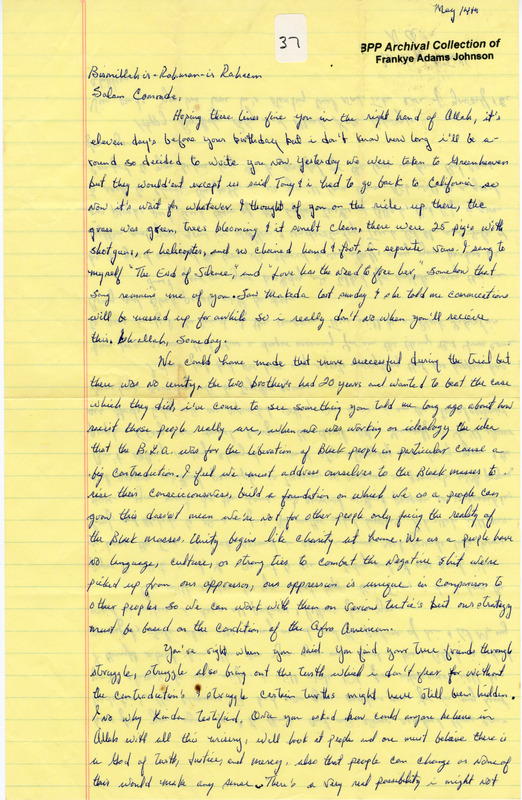 May 14th
37
BPP Archival Collection of
Frankye Adams Johnson
Bismillah-ir-Rahman-ir Raheem
Salam Comrade,
Hoping these lines fine you in the right hand of Allah, it's
eleven day's before your birthday but i don't know how long i'll be a-
round so decided to write you now. Yesterday we were taken to Greenhaven
but they would'ent except us said Tony & i had to go back to California so
now it's wait for whatever. I thought of you on the ride up there, the
grass was green, trees blooming & it smelt clean, there were 25 pigs with
shotguns, a helicopter, and us chained hand & foot, in separate vans. I sang to
myself "The End of Silence," and "Love has the need to free her," somehow that
song remains me of you. Saw Makeda last sunday & she told me connections
will be messed up for awhile so i really don't no when you'll recieve
this. Insh-allah, someday.
We could have made that move successful during the trial but
there was no unity, the two brothers had 20 years and wanted to beat the case
which they did, i've come to see something you told me long ago about how
racist those people really are, when we was working on idealogy the idea
that the B.L.A. was for the liberation of Black people in particular cause a
big contradiction. I feel we must address ourselves to the Black masses to
rise their consciousness, build a foundation on which we as a people can
grow this doesn't mean we're not for other people only facing the reality of
the Black masses. Unity begins like charity at home. We as a people have
no language, culture, or strong ties to combat the negative shit we've
picked up from our oppressor, our oppression is unique in comparison to
other peoples so we can work with them on various tactics but our strategy
must be based on the condition of the Afro American.
You're right when you said you find your true friends through
struggle, struggle also bring out the truth which i don't fear for without
the contradictions & struggle certain truths might have still been hidden.
I no why testified. Once you asked how could anyone believe in
Allah with all this, well look at people and one must believe there is
a God of truth, justice, and mercy, also that people can change or none of
this would make any sense. There's a very real possibility i might not